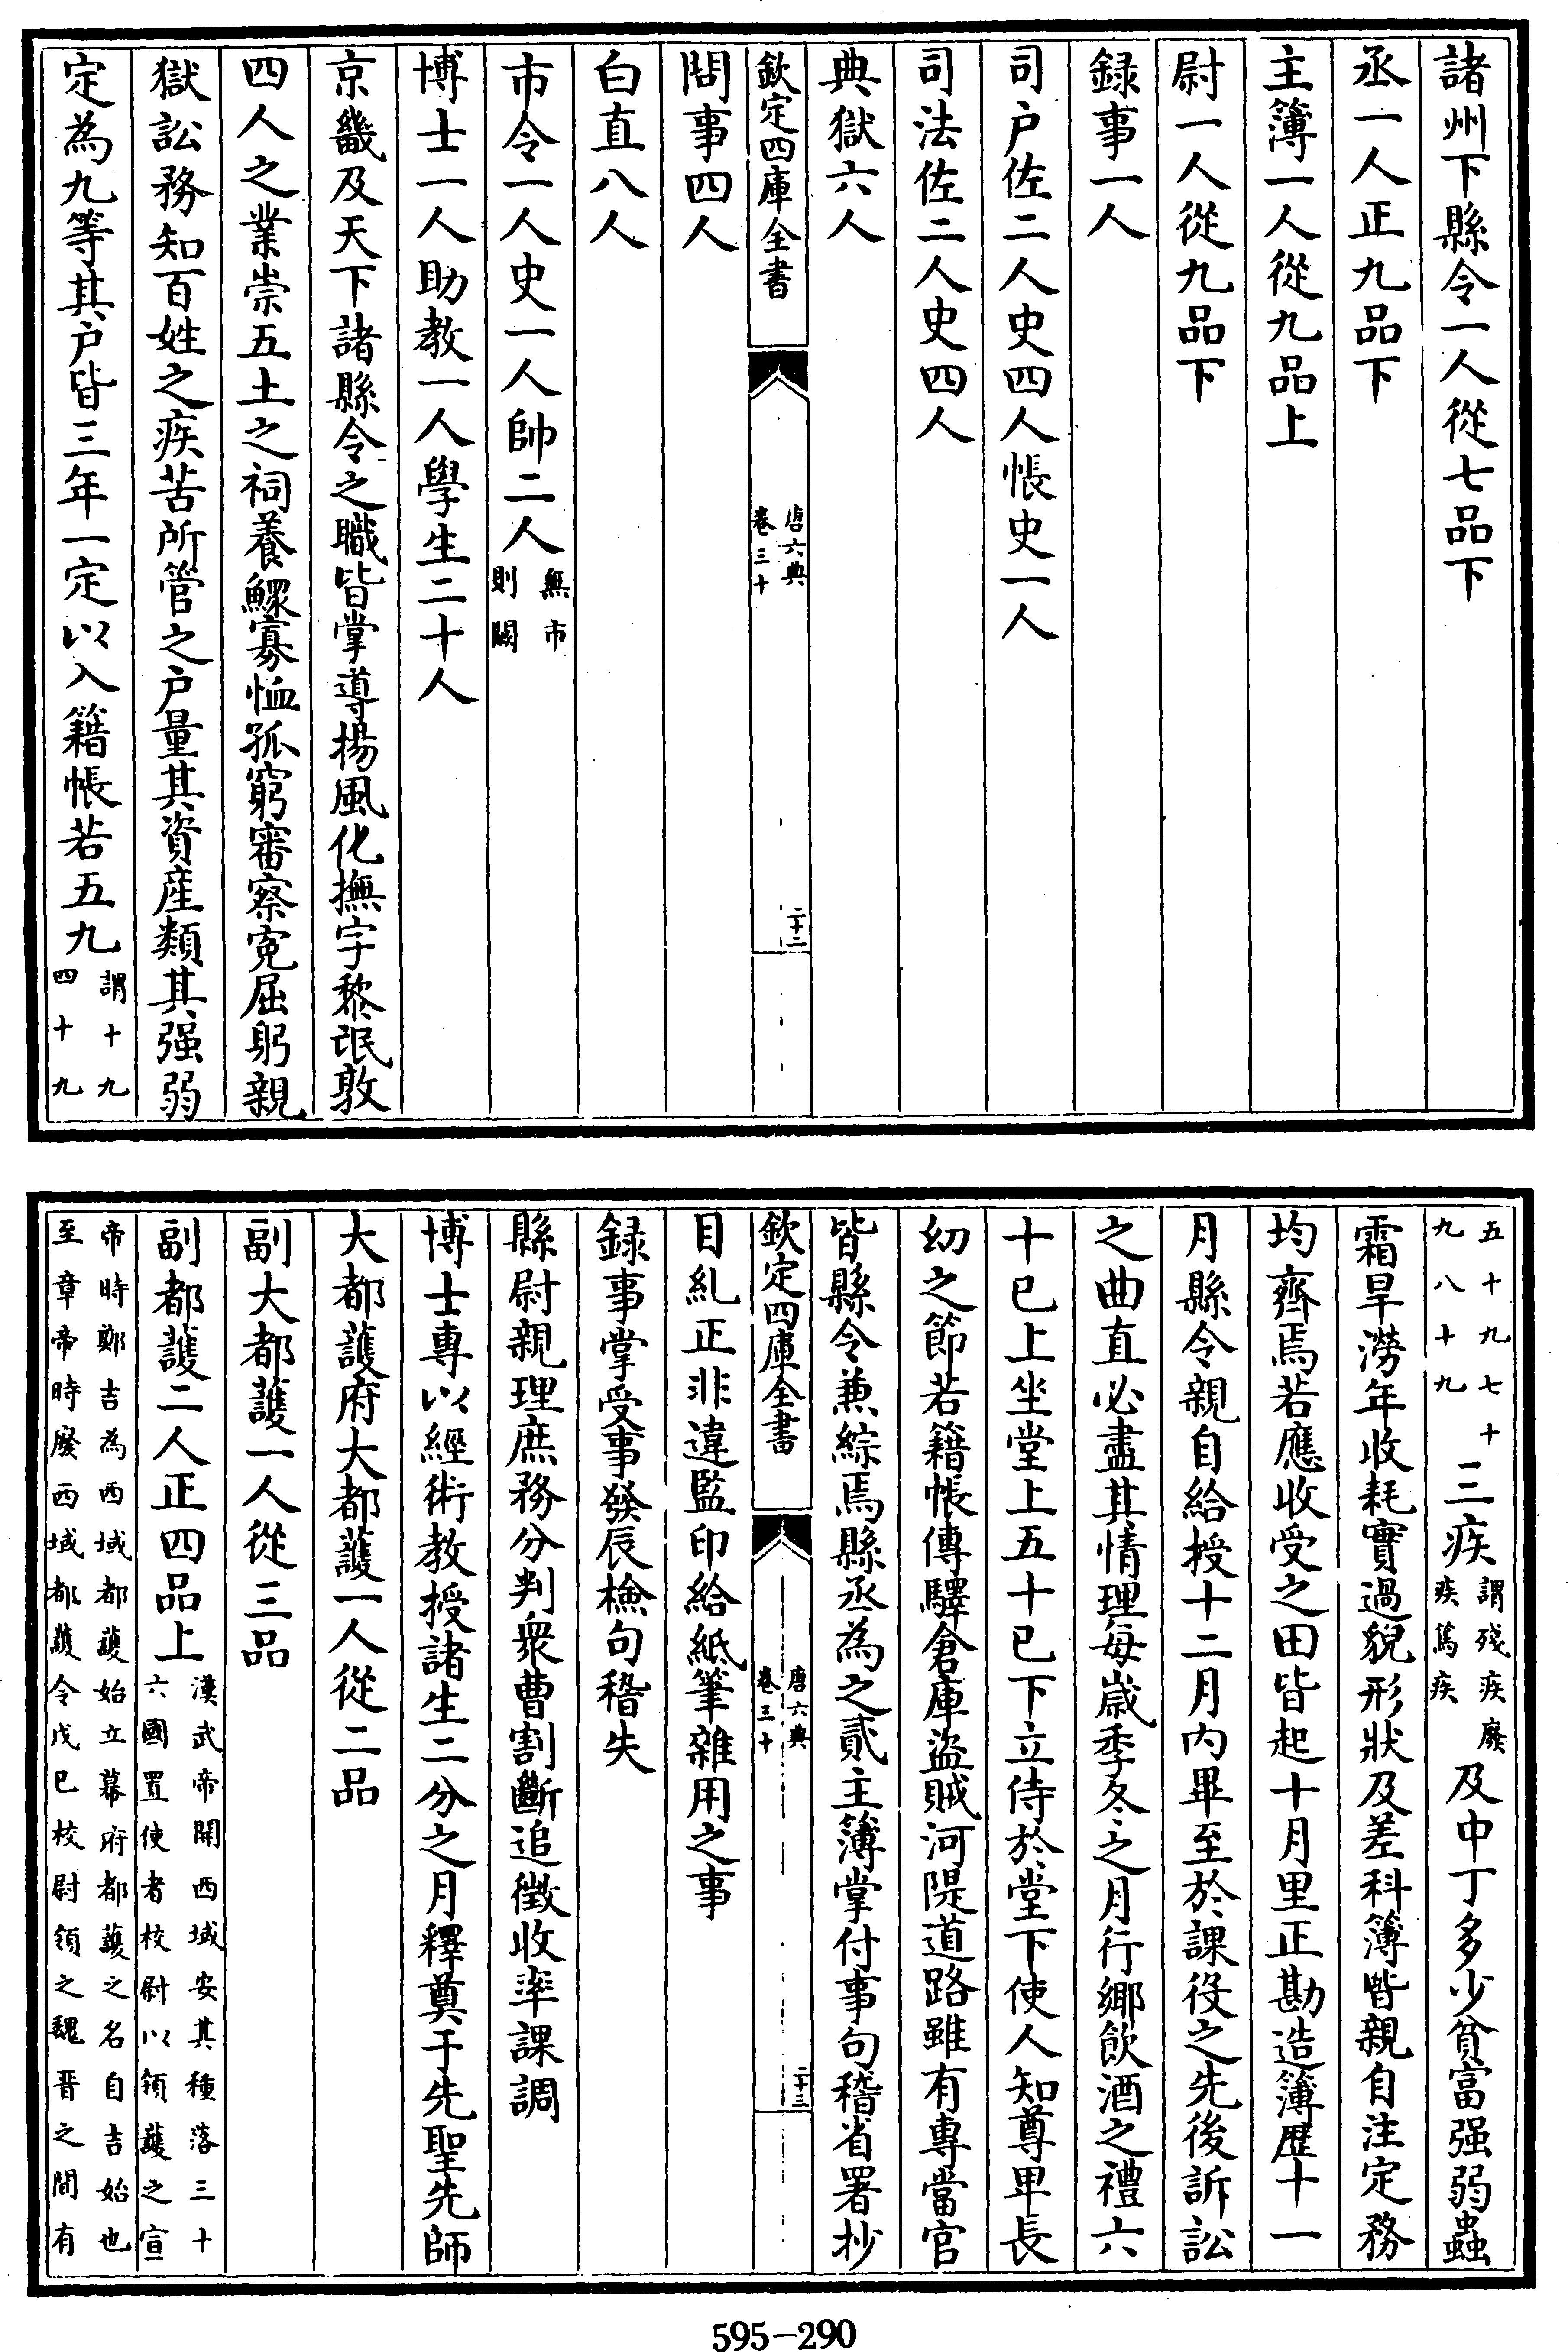 諸州下縣令一人從七品下
丞一人正九品下
主簿一人從九品上
尉一人從九品下
録事一人
司户佐二人史四人帳史一人
司法佐二人史四人
典獄六人
欽定四庫全書
唐六典
卷三十
二十二
問事四人
白直八人
市令一人史一人帥二人無市
則闕
博士一人助教一人學生二十人
京畿及天下諸縣令之職皆掌導揚風化撫字黎氓敦
四人之業崇五土之祠養鰥寡恤孤窮審察寃屈躬親
獄訟務知百姓之疾苦所管之户量其資産類其强弱
定為九等其户皆三年一定以入籍帳若五九謂十九
四十九
五十九七十
九八十九三疾謂殘疾廢
疾篤疾及中丁多少貧富强弱蟲
霜旱澇年收耗實過貌形狀及差科簿皆親自注定務
均齊焉若應收受之田皆起十月里正勘造簿歷十一
月縣令親自給授十二月内畢至於課役之先後訴訟
之曲直必盡其情理每歲季冬之月行鄉飲酒之禮六
十已上坐堂上五十已下立侍於堂下使人知尊卑長
幼之節若籍帳傳驛倉庫盜賊河隄道路雖有專當官
皆縣令兼綜焉縣丞為之貳主簿掌付事句稽省署抄
欽定四庫全書
唐六典
卷三十
二十三
目糺正非違監印給紙筆雜用之事
録事掌受事發辰檢句稽失
縣尉親理庶務分判衆曹割斷追徵收率課調
博士專以經術教授諸生二分之月釋奠于先聖先師
大都護府大都護一人從二品
副大都護一人從三品
副都護二人正四品上漢武帝開西域安其種落三十
六國置使者校尉以領護之宣
帝時鄭吉為西域都護始立幕府都護之名自吉始也
至章帝時廢西域都護令戊巳校尉領之魏晉之間有
595-290